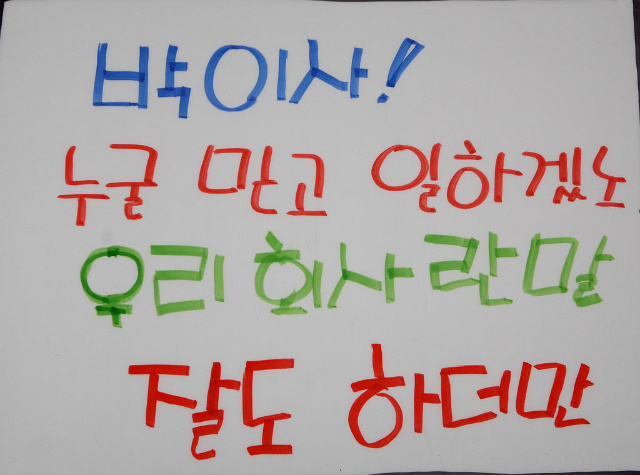 박이사!
누굴 믿고 일하겠노
우리 회사란 말
잘도 하더만